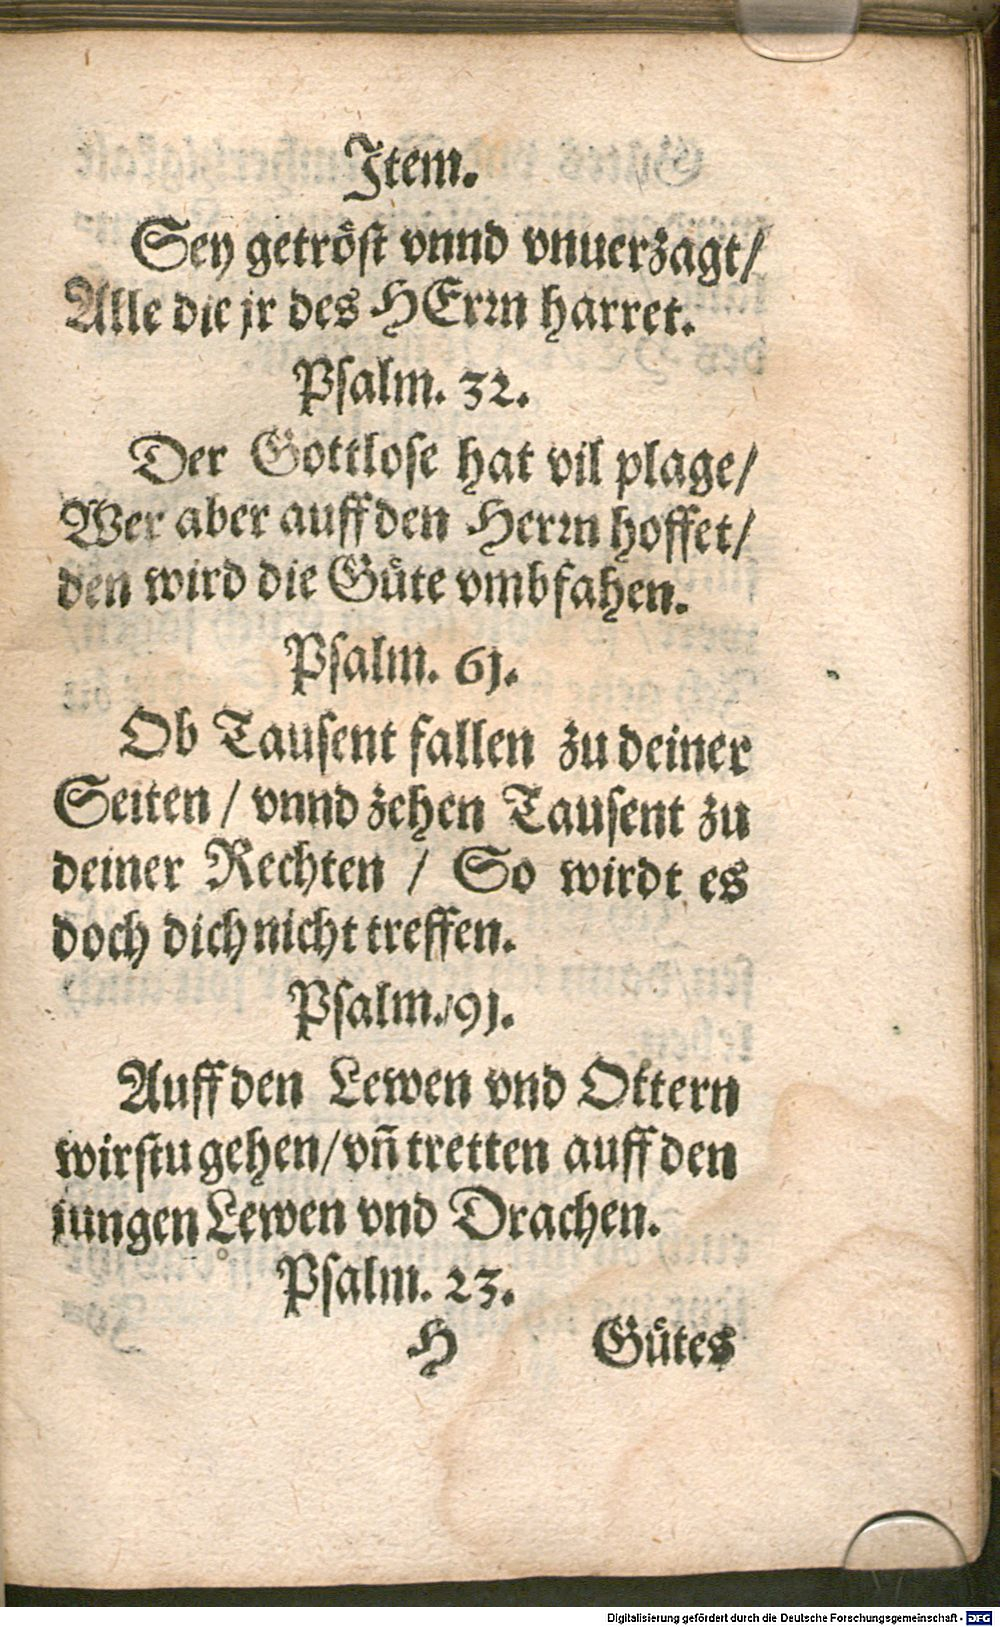 Item.
Sey getröst vnnd vnuerzagt/
Alle die jr des HErrn harret.
Psalm. 32.
Der Gottlose hat vil plage/
Wer aber auff den Herrn hoffet/
den wird die Güte vmbfahen.
Psalm. 61.
Ob Tausent fallen zu deiner
Seiten / vnnd zehen Tausent zu
deiner Rechten / So wirdt es
doch dich nicht treffen.
Psalm. 91.
Auff den Lewen vnd Ottern
wirstu gehen/vñ tretten auff den
jungen Lewen vnd Drachen.
Psalm. 23.
H Gůtes
Digitalisierung gefördert durch die Deutsche Forschungsgemeinschaft - DFG